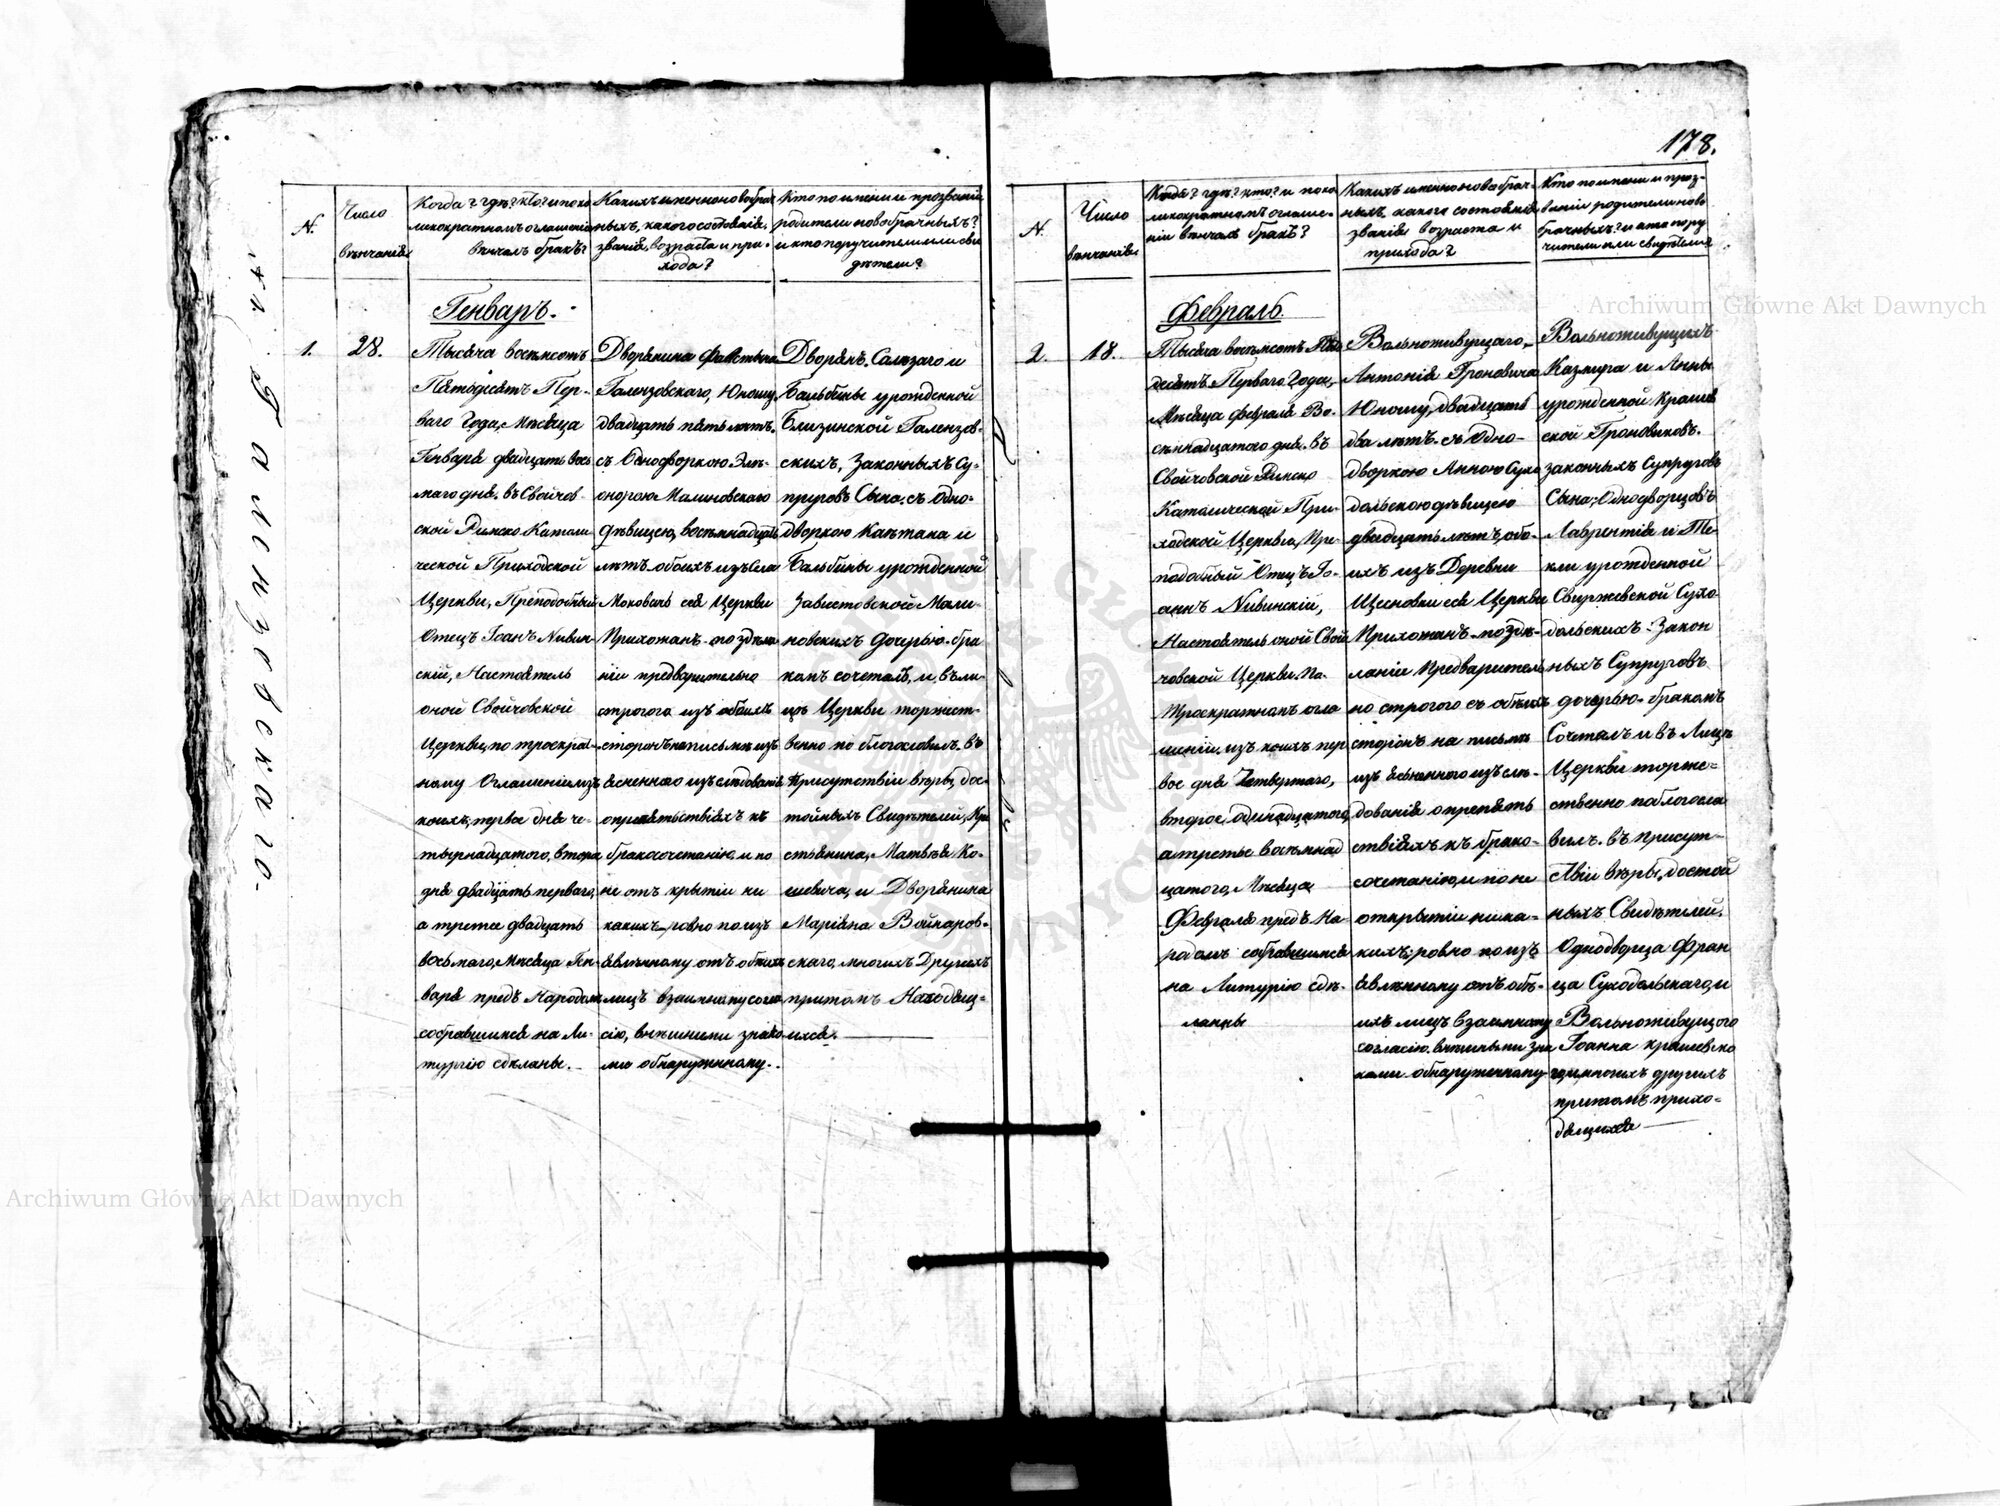 178.
N.
Число
вѣнчанія
Когда? гдѣ? кто? и поко
ликократномъ оглашеніи
вѣнчалъ бракъ?
Какихъ именно новобрач
ныхъ, какого состоянія,
званія, возраста и при-
хода?
Кто по имени и прозванію
родители новобрачныхъ?
и кто поручители или сви
дѣтели?
Генварь.
1.
28.
Тысяча восемсотъ
Пятьдесятъ Пер-
ваго Года, Мѣсяца
Генваря двадцать вось
маго дня. въ Свойчов
ской Римско Катали
ческой Приходской
Церкви, Преподобный
Отецъ Іоанъ Нивин-
скій, Настоятель
оной Свойчовской
Церкви, по троекрат-
ному Оглашенію, изъ
коихъ, первое дня че-
тырнадцатого, второе
дня двадцать перваго,
а третее двадцать
восьмаго, Мѣсяца Ген-
варя предъ Народомъ
собравшимся на Ли-
тургію сдѣланы.
Дворянина
Галензовскаго, Юношу,
двадцать пять лѣтъ.
съ Однодворкою Эле-
онорою Малиновскаю
дѣвицею, восемнадцать
лѣтъ обоихъ изъ Села
Моковичь сея Церкви
Прихожанъ по здѣла
ніи предварительно
строгого изъ обоихъ
сторонъ на письмѣ изъ
ясненнаго изъслѣдованія
опрепятствіяхъ къ
бракосочетанію, и по
не отъ крытіи ни
какихъ, ровно по изъ
явленному отъ обоихъ
лицъ взаимному согла
сію, внешними знака
ми обнаруженному.
Дворянъ. Салезаго и
Бальбины урожденной
Близинской Галензов-
скихъ, Законныхъ Су-
пруговъ Сына. съ Одно-
дворкою Каетана и
Бальбины урожденной
Завистовской Мали-
новскихъ дочерью. бра
комъ сочеталъ, и въ ли-
цѣ Церкви торжест-
венно по благословилъ. въ
Присутствіи вѣры дос-
тойныхъ Свидѣтелей, Кре
стьянина, Матвѣя Ко-
шевича, и Дворянина
Маріяна Войнаров-
скаго, многихъ Другихъ
притомъ Находящ-
ихся.
N.
Число
вѣнчанія
Когда? гдѣ? кто? и поко
ликократномъ оглаше-
ніи вѣнчалъ бракъ?
Какихъ именно новобрач-
ныхъ, какого состоянія
званія возраста и
прихода?
Кто по имени и проз-
ванію родители ново
брачныхъ? и кто пору
чители или свидѣтели?
Февраль
2.
18.
Тысяча восемсотъ Пять
десятъ Перваго Года,
Мѣсяца февраля Во-
семнадцатого дня. въ
Свойчовской Римско
Католической При-
ходской Церквѣ, Пре-
подобный Отецъ Іо-
аннъ Нивинскій,
Настоятель оной Свой
човской Церкви. По-
Троекратномъ огла
шеніи, изъ коихъ пер
вое дня Четвертаго,
второе, одинадцатого,
а третье восемнад
цатого, Мѣсяца
Февраля предъ На-
родомъ собравшимся
на Литургію сдѣ-
ланны
Вольноживущаго,
Антонія Гроновича
Юношу, двадцать
два лѣтъ. съ Одно-
дворкою Анною Сухо
дольскою дѣвицею
двадцать лѣтъ, обо-
ихъ изъ Деревни
Щесновки сея Церкви
Прихожанъ. по здѣ-
ланіи Предваритель
но строгого съ обѣихъ
сторонъ на письмѣ
изъ ясьненного изъслѣ-
дованія опрепять
ствіяхъ къ брако-
сочетанію, и по не
открытіи ника-
кихъ, ровно по изъ
явленному отъ обѣ-
ихъ лицъ взаимному
согласію внешными зна
ками обнаруженному
Вольноживущихъ
Казмира и Анны
урожденной Крашев
ской Гроновиковъ.
законныхъ Супруговъ
Сына, Однодворцовъ
Лаврентія и Те-
кли урожденной
Свиржевской Сухо-
дольскихъ. Закон
ныхъ Супруговъ
дочерью. бракомъ
Сочеталъ и въ Лицѣ
Церкви торже-
ственно поблагосла
вилъ. въ присут-
ствіи вѣры, достой
ныхъ Свидѣтелей,
Однодворца Фран
ца Суходольскаго, и
Вольноживущого
Іоанна Крашевско
го, многихъ другихъ
притомъ прихо-
дящихся
Archiwum Główne Akt Dawnych
Archiwum Główne Akt Dawnych